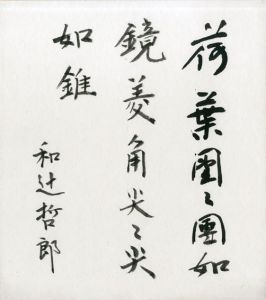 荷葉團〻團如
鏡菱角尖〻尖
如錐
和辻哲郎